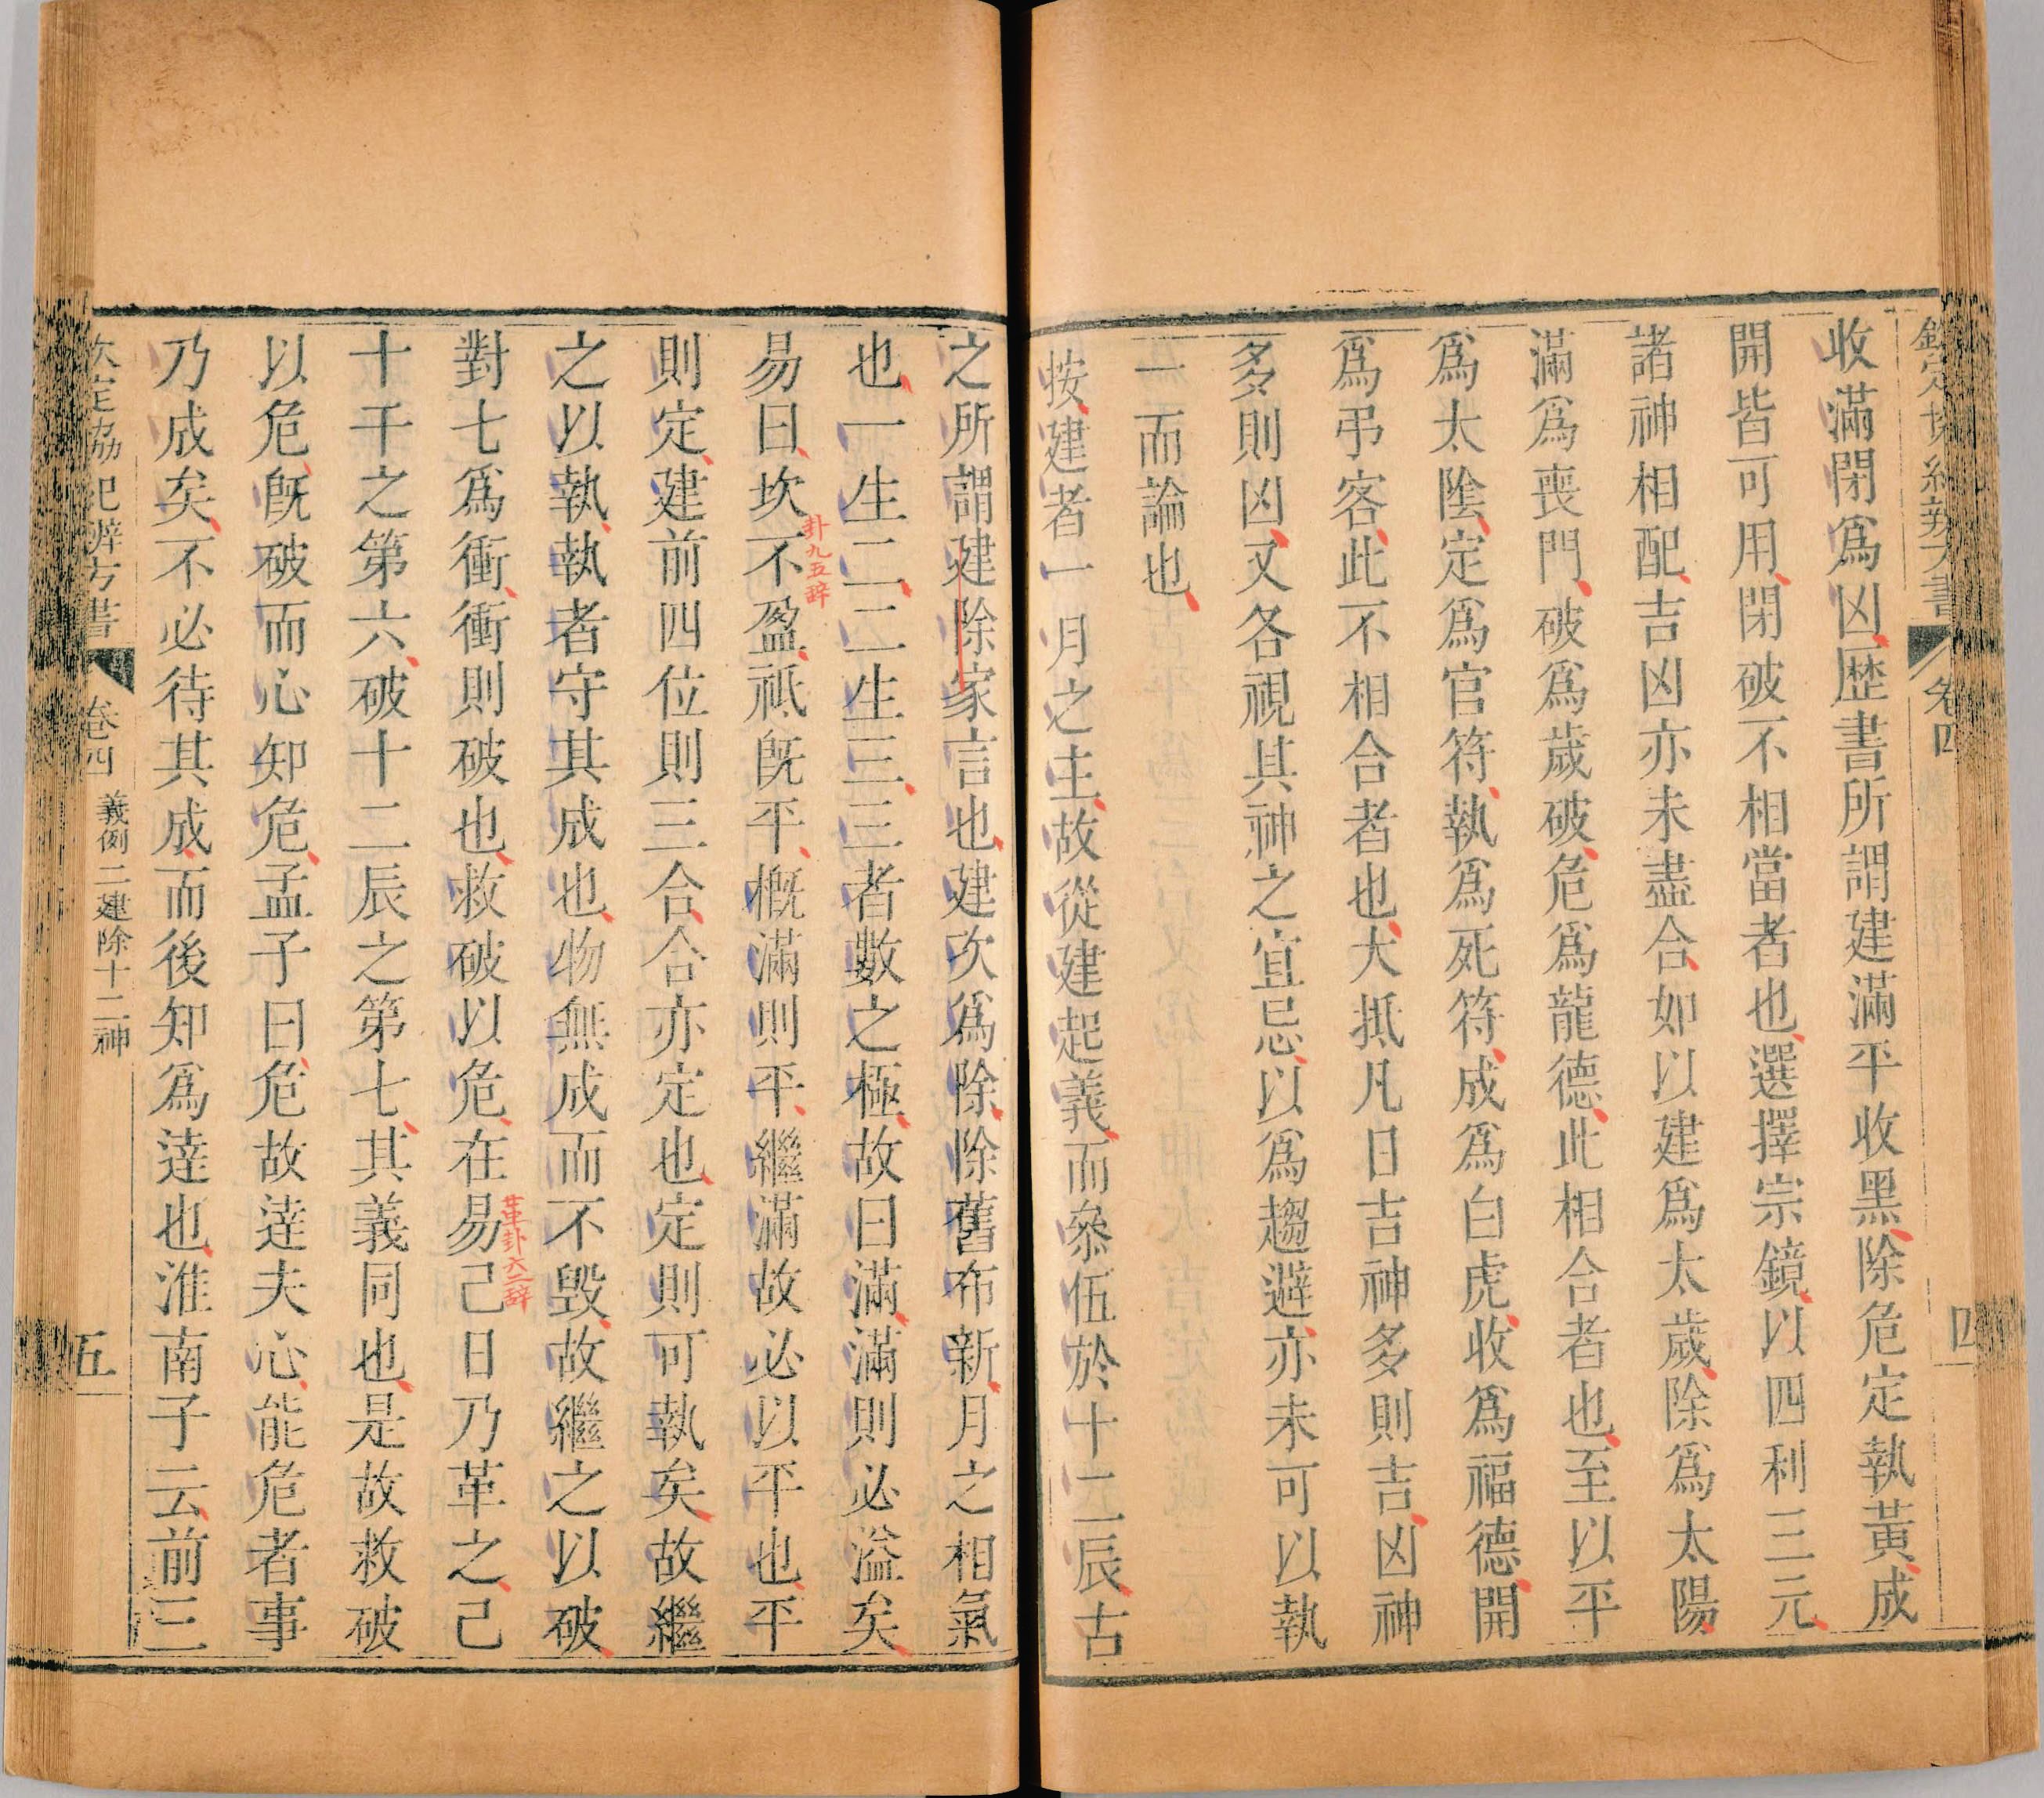 欽定協紀辨方書 卷四 四
收滿閉爲凶歷書所謂建滿平收黑除危定執黃成
開皆可用閉破不相當者也選擇宗鏡以四利三元
諸神相配吉凶亦未盡合如以建爲太歲除爲太陽
滿爲喪門破爲歲破危爲龍德此相合者也至以平
爲太陰定爲官符執爲死符成爲白虎收爲福德開
爲弔客此不相合者也大抵凡日吉神多則吉凶神
多則凶又各視其神之宜忌以爲趨避亦未可以執
一而論也
按建者一月之主故從建起義而叅伍於十二辰古
之所謂建除家言也建次爲除除舊布新月之相氣
也一生二二生三三者數之極故曰滿滿則必溢矣
易曰坎不盈祗旣平概滿則平繼滿故必以平也平
卦九五辭
則定建前四位則三合合亦定也定則可執矣故繼
之以執執者守其成也物無成而不毀故繼之以破
對七爲衝衝則破也救破以危在易己日乃革之己
革卦六二辭
十干之第六破十二辰之第七其義同也是故救破
以危旣破而心知危孟子曰危故達夫心能危者事
乃成矣不必待其成而後知爲達也淮南子云前三
欽定協紀辨方書 卷四 義例二建除十二神 五